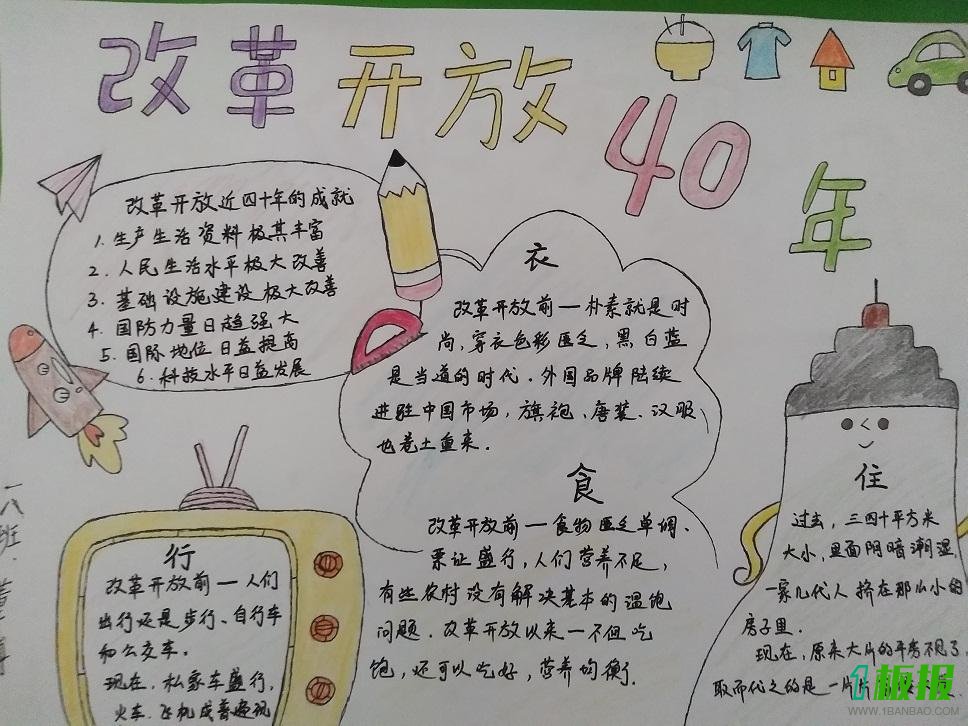 改革开放
40
年
改革开放近四十年的成就
1. 生产生活资料极其丰富
2. 人民生活水平极大改善
3. 基础设施建设极大改善
4. 国防力量日趋强大
5. 国际地位日益提高
6. 科技水平日益发展
衣
改革开放前一朴素就是时
尚,穿衣色彩匮乏,黑白蓝
是当道的时代.外国品牌陆续
进驻中国市场,旗袍、唐装、汉服
也卷土重来.
食
改革开放前一食物匮乏单调、
票证盛行,人们营养不足,
有些农村没有解决基本的温饱
问题.改革开放以来一不但吃
饱,还可以吃好,营养均衡.
住
过去,三四十平方米
大小,里面阴暗潮湿,
一家几代人挤在那么小的
房子里.
现在,原来大片的平房不见了,
取而代之的是一片片
行
改革开放前一人们
出行还是步行、自行车
和公交车.
现在.私家车盛行,
火车.飞机成普遍现
一八班.
1板报
WWW.1BANBAO.COM